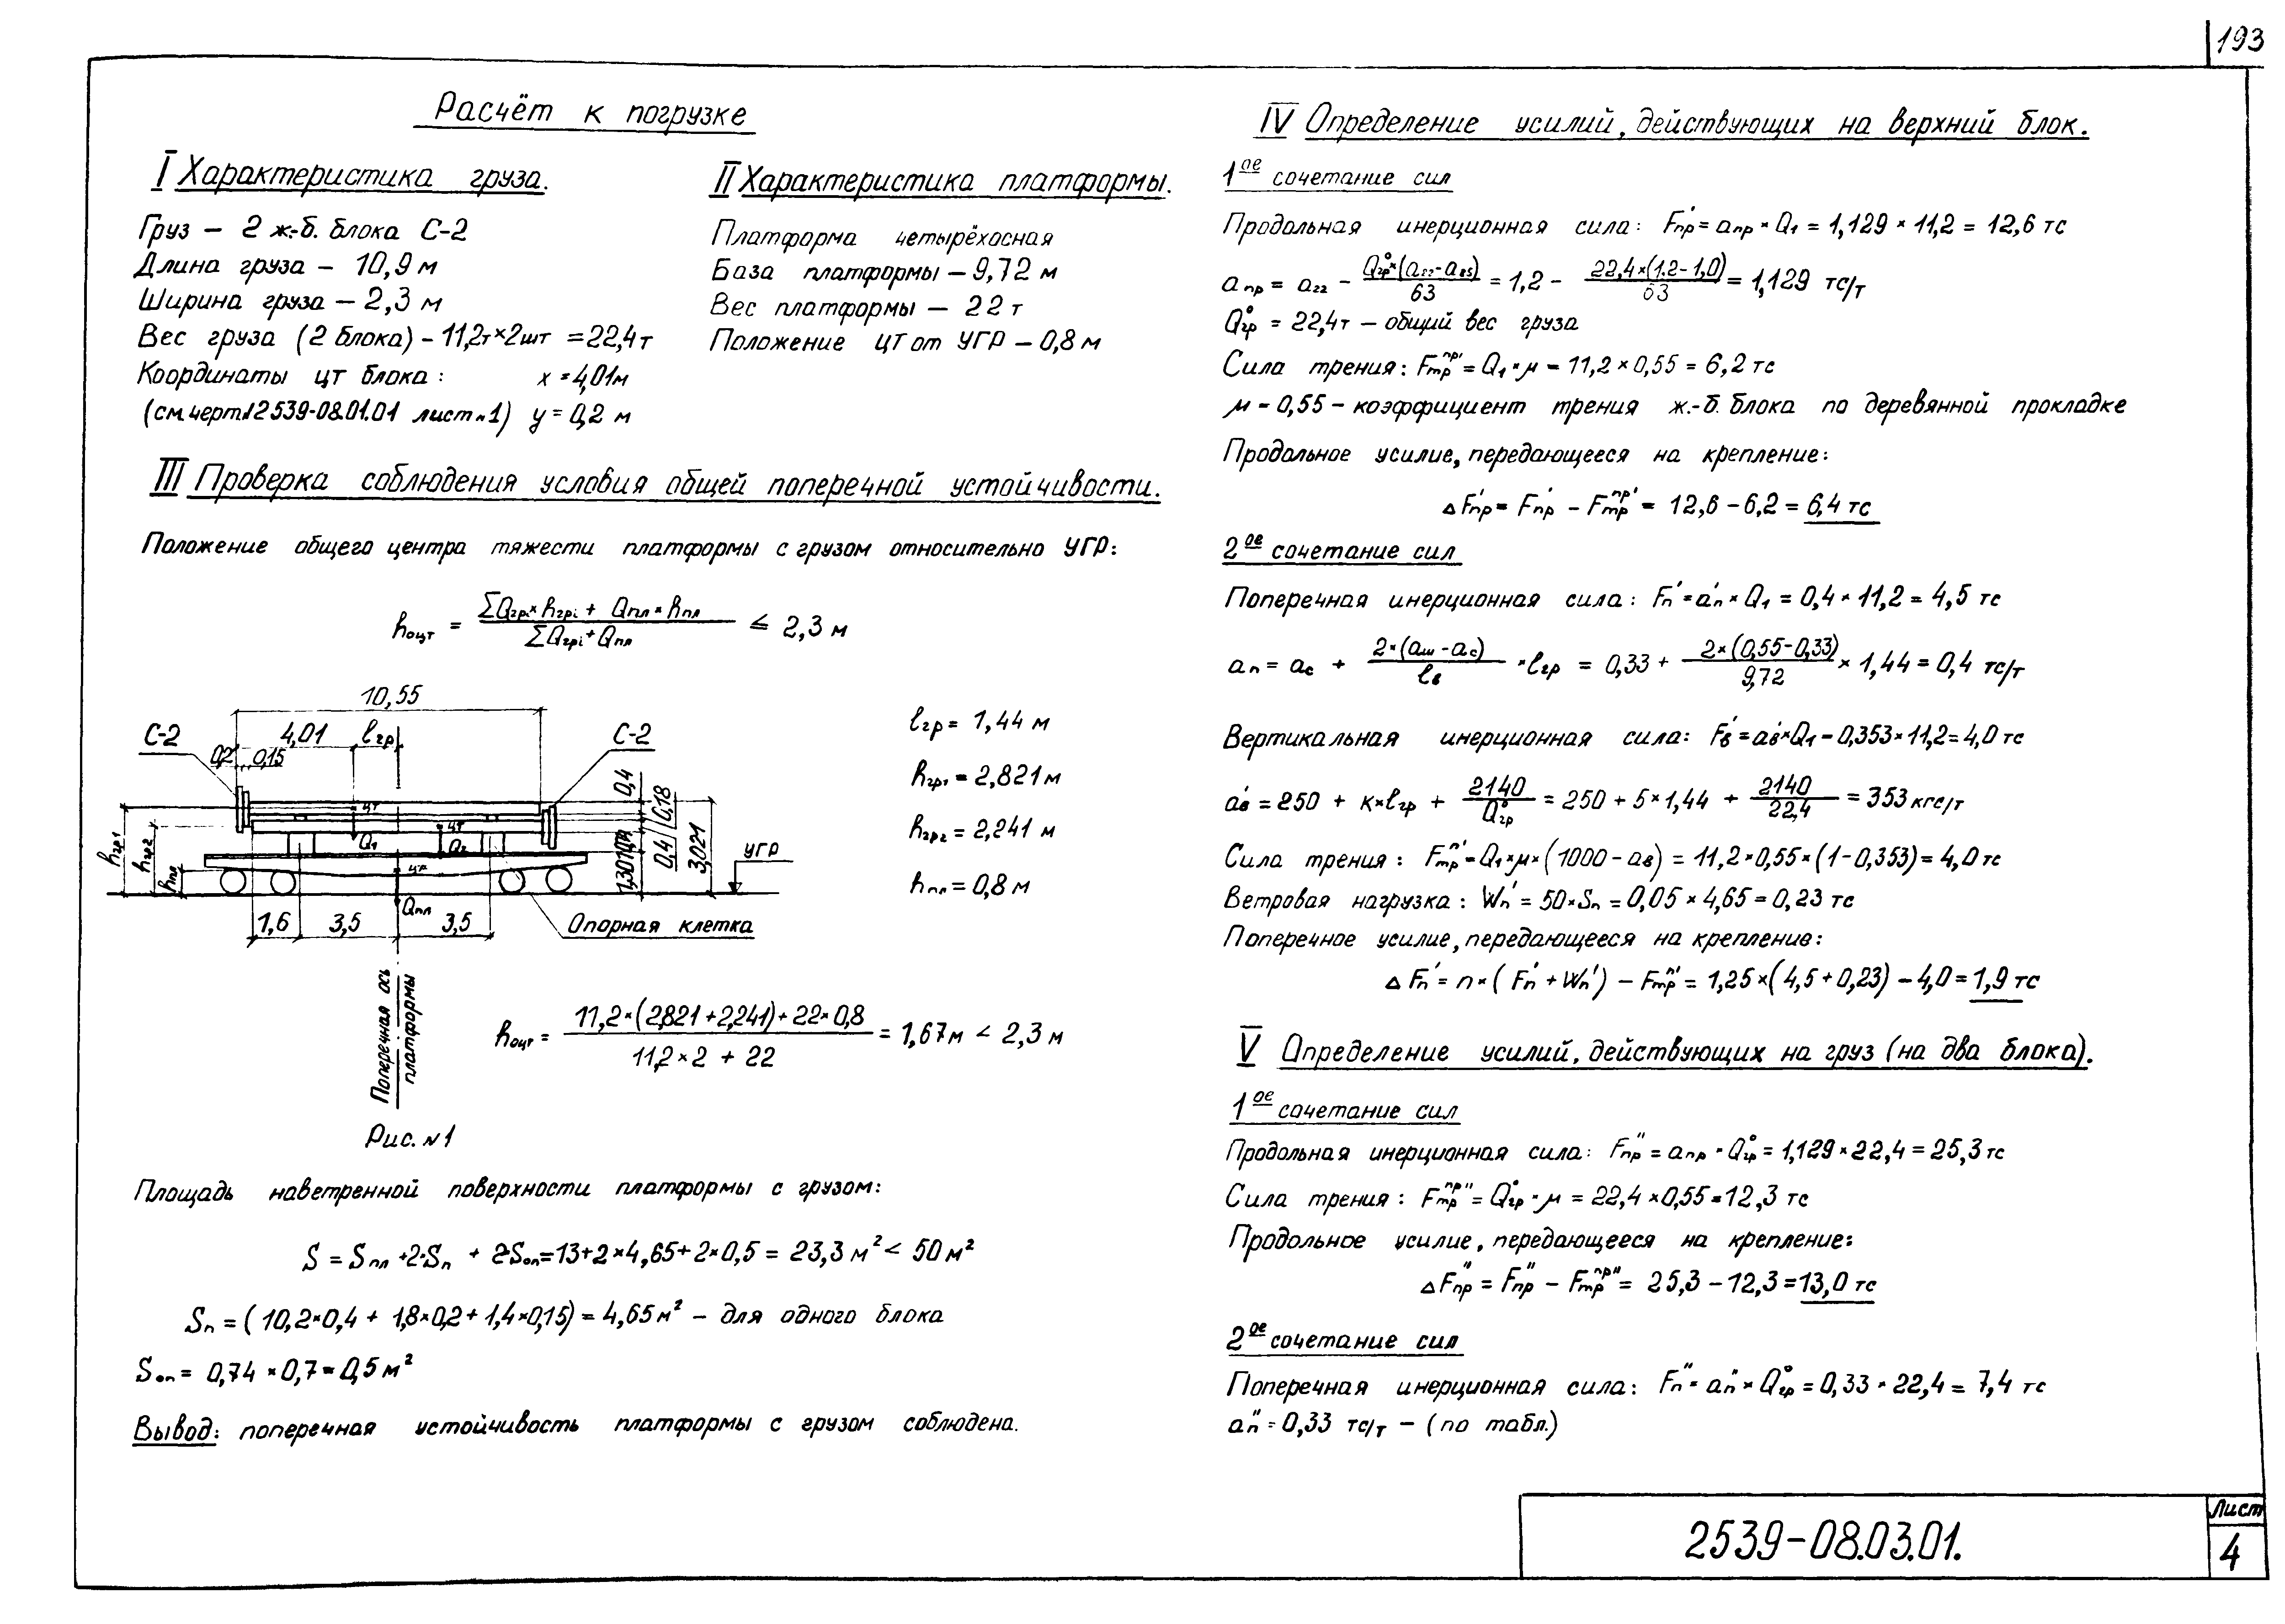 193
Расчёт к погрузке
I Характеристика груза.
Груз – 2 ж.-б. блока С-2
Длина груза – 10,9 м
Ширина груза – 2,3 м
Вес груза (2 блока) – 11,2т×2шт = 22,4т
Координаты цт блока: x = 4,01м
(см.черт.2539-08.01.01 лист №1) y = 0,2 м
II Характеристика платформы.
Платформа четырёхосная
База платформы – 9,72 м
Вес платформы – 22 т
Положение цт от УГР – 0,8 м
III Проверка соблюдения условия общей поперечной устойчивости.
Положение общего центра тяжести платформы с грузом относительно УГР:
hоцт = (ΣQгрi × hгрi + Qпл × hпл) / (ΣQгрi + Qпл) ≤ 2,3 м
10,55
4,01 lгр
С-2
С-2
0,2 0,15
0,4
0,18
0,4
3,021
цт
цт
цт
Q1
Q2
Qпл
hгр1
hгр2
hпл
УГР
1,6 3,5 3,5
Опорная клетка
Поперечная ось
платформы
Рис. №1
lгр = 1,44 м
hгр1 = 2,821 м
hгр2 = 2,241 м
hпл = 0,8 м
hоцт = (11,2×(2,821+2,241)+22×0,8) / (11,2×2 + 22) = 1,67м < 2,3 м
Площадь наветренной поверхности платформы с грузом:
S = Sпл +2·Sп + 2·Sоп=13+2×4,65+2×0,5 = 23,3 м² < 50 м²
Sп = (10,2×0,4 + 1,8×0,2 + 1,4×0,15) = 4,65м² – для одного блока
Sоп = 0,74 × 0,7 = 0,5 м²
Вывод: поперечная устойчивость платформы с грузом соблюдена.
IV Определение усилий, действующих на верхний блок.
1ое сочетание сил
Продольная инерционная сила: F'пр = aпр × Q1 = 1,129 × 11,2 = 12,6 тс
aпр = a22 – Q°гр×(a22–a85) / 63 = 1,2 – 22,4×(1.2–1,0) / 63 = 1,129 тс/т
Q°гр = 22,4т – общий вес груза
Сила трения: Fтрпр' = Q1 × μ = 11,2 × 0,55 = 6,2 тс
μ – 0,55 – коэффициент трения ж.-б. блока по деревянной прокладке
Продольное усилие, передающееся на крепление:
ΔF'пр = F'пр – Fтрпр' = 12,6 – 6,2 = 6,4 тс
2ое сочетание сил
Поперечная инерционная сила: Fп' = aп' × Q1 = 0,4 × 11,2 = 4,5 тс
aп = aс + 2×(aш – aс) / lв × lгр = 0,33 + 2×(0,55–0,33) / 9,72 × 1,44 = 0,4 тс/т
Вертикальная инерционная сила: Fв' = aв'×Q1 = 0,353×11,2 = 4,0 тс
aв' = 250 + к×lгр + 2140 / Q°гр = 250 + 5×1,44 + 2140 / 22,4 = 353 кгс/т
Сила трения: Fтрп' = Q1×μ×(1000 – aв) = 11,2×0,55×(1–0,353) = 4,0 тс
Ветровая нагрузка: Wп' = 50×Sп = 0,05 × 4,65 = 0,23 тс
Поперечное усилие, передающееся на крепление:
ΔFп' = n×(Fп' + Wп') – Fтрп' = 1,25×(4,5 + 0,23) – 4,0 = 1,9 тс
V Определение усилий, действующих на груз (на два блока).
1ое сочетание сил
Продольная инерционная сила: Fпр" = aпр × Q°гр = 1,129×22,4 = 25,3 тс
Сила трения: Fтрпр" = Q°гр × μ = 22,4 × 0,55 = 12,3 тс
Продольное усилие, передающееся на крепление:
ΔFпр" = Fпр" – Fтрпр" = 25,3 – 12,3 = 13,0 тс
2ое сочетание сил
Поперечная инерционная сила: Fп" = aп" × Q°гр = 0,33 × 22,4 = 7,4 тс
aп" = 0,33 тс/т – (по табл.)
2539-08.03.01.
Лист
4